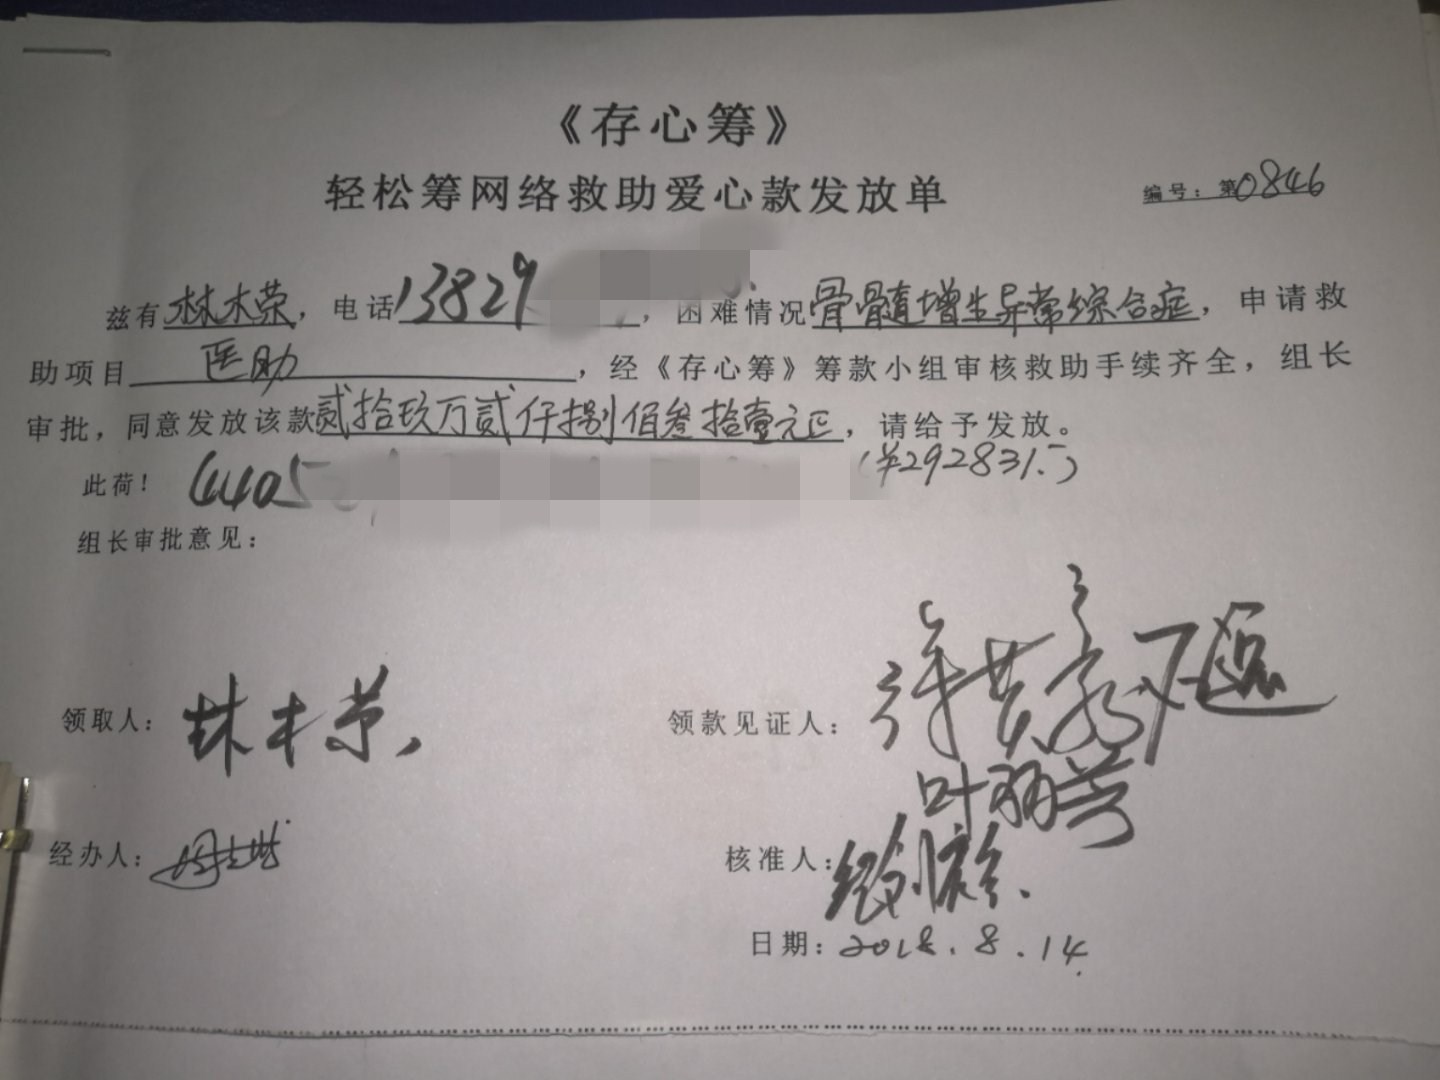 《存心筹》
轻松筹网络救助爱心款发放单
编号：第0846
兹有林木荣，电话13829，困难情况骨髓增生异常综合症，申请救
助项目医助，经《存心筹》筹款小组审核救助手续齐全，组长
审批，同意发放该款贰拾玖万贰仟捌佰叁拾壹元正，请给予发放。
此荷！4405
(¥292831.-)
组长审批意见：
领取人：林木荣
领款见证人：
叶丽芳
经办人：
核准人：
日期：2018.8.14